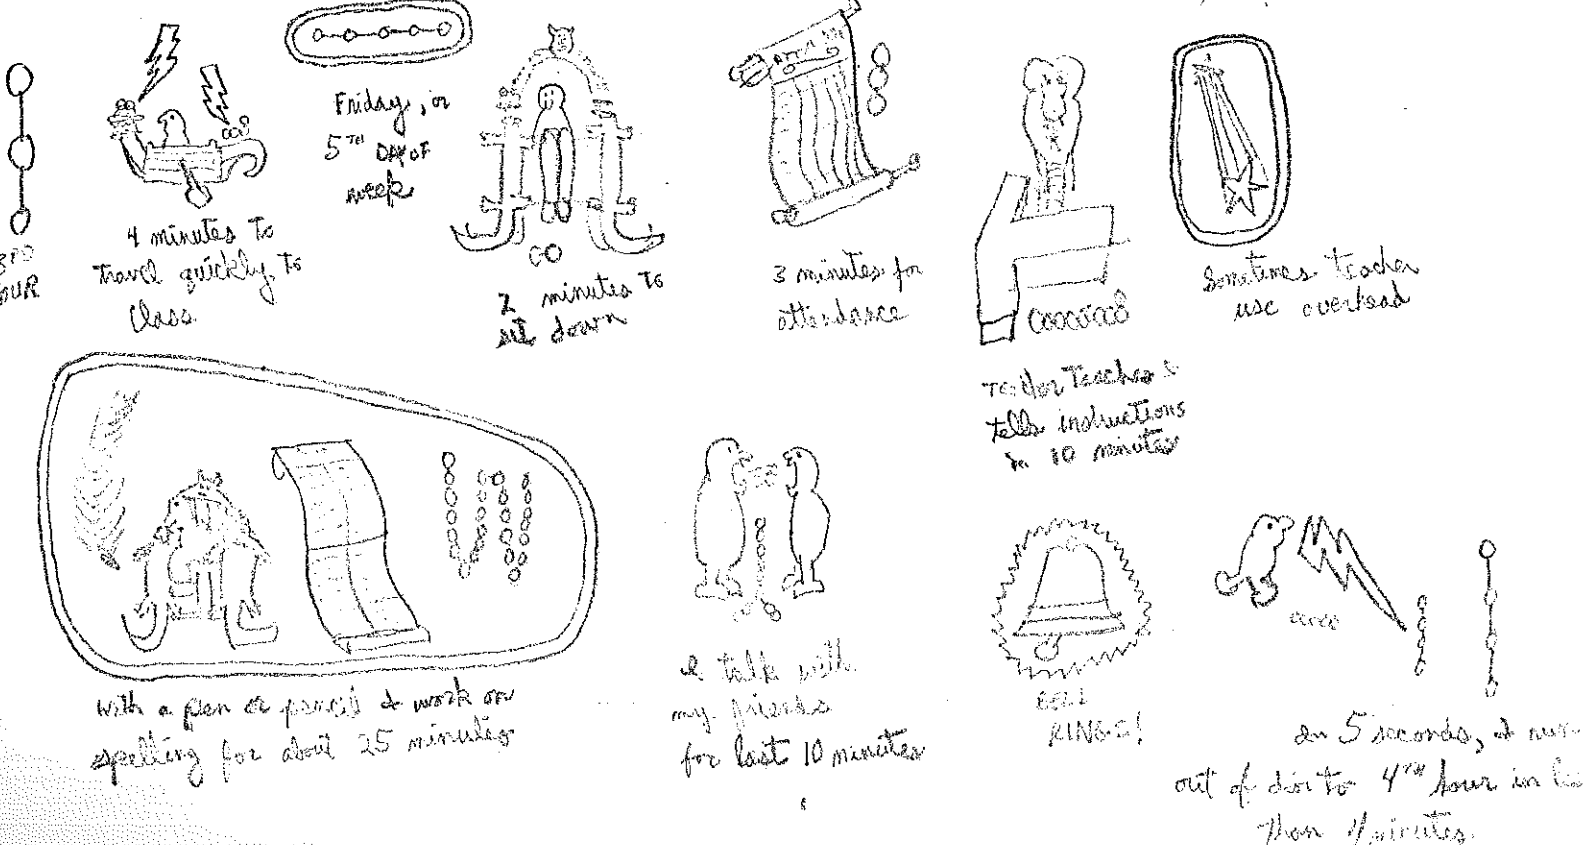 3RD
HOUR
4 minutes to
travel quickly to
class
Friday, or
5TH DAY OF
week
2 minutes to
sit down
3 minutes for
attendance
teaches &
tells instructions
in 10 minutes
Sometimes teacher
use overhead
with a pen or pencil I work on
spelling for about 25 minutes
I talk with
my friends
for last 10 minutes
BELL
RINGS!
In 5 seconds, I run
out of door to 4TH hour in
than 4 minutes.